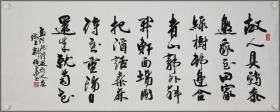 故人具鷄黍
邀我至田家
綠樹村邊合
青山郭外斜
開軒面場圃
把酒話桑麻
待到重陽日
還來就菊花
孟浩然詩過故人莊